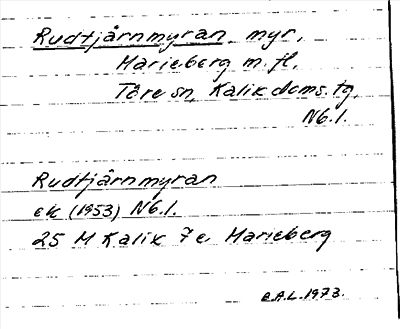 Rudtjärnmyran, myr,
Marieberg m. fl.
Töre sn, Kalix doms. tg,
Nb.l.
Rudtjärnmyran
ek (1953) Nb.l.
25 M Kalix 7 e, Marieberg
E.A.L. 1973.